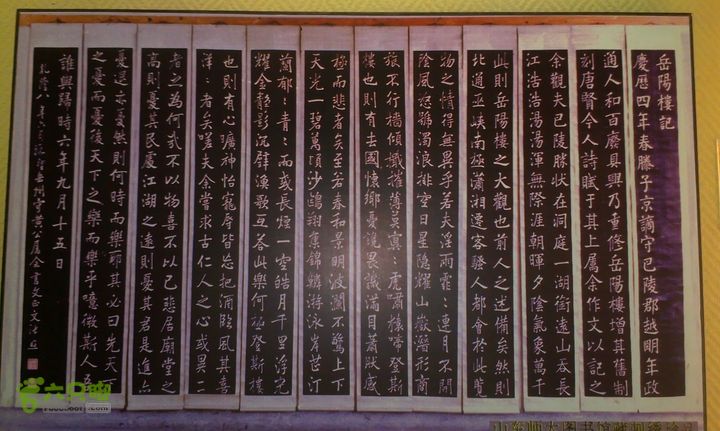 岳陽樓記
慶曆四年春滕子京謫守巴陵郡越明年政
通人和百廢具興乃重修岳陽樓增其舊制
刻唐賢今人詩賦于其上屬余作文以記之
余觀夫巴陵勝狀在洞庭一湖銜遠山吞長
江浩浩湯湯渾無際涯朝暉夕陰氣象萬千
此則岳陽樓之大觀也前人之述備矣然則
北通巫峽南極瀟湘遷客騷人都會於此覽
物之情得無異乎若夫淫雨霏〻連月不開
陰風怒號濁浪排空日星隱耀山嶽潛形商
旅不行檣傾檝摧薄莫冥〻虎嘯猿啼登斯
樓也則有去國懷鄉憂讒畏譏滿目蕭然感
極而悲者矣至若春和景明波瀾不驚上下
天光一碧萬頃沙鷗翔集錦鱗游泳岸芷汀
蘭郁〻青〻而或長煙一空皓月千里浮光
耀金靜影沉璧漁歌互答此樂何極登斯樓
也則有心曠神怡寵辱皆忘把酒臨風其喜
洋〻者矣嗟夫余嘗求古仁人之心或異二
者之為何哉不以物喜不以己悲居廟堂之
高則憂其民處江湖之遠則憂其君是進亦
憂退亦憂然則何時而樂耶其必曰先天下
之憂而憂後天下之樂而樂乎噫微斯人吾
誰與歸時六年九月十五日
乾隆八年
六只脚
山東師大圖書館